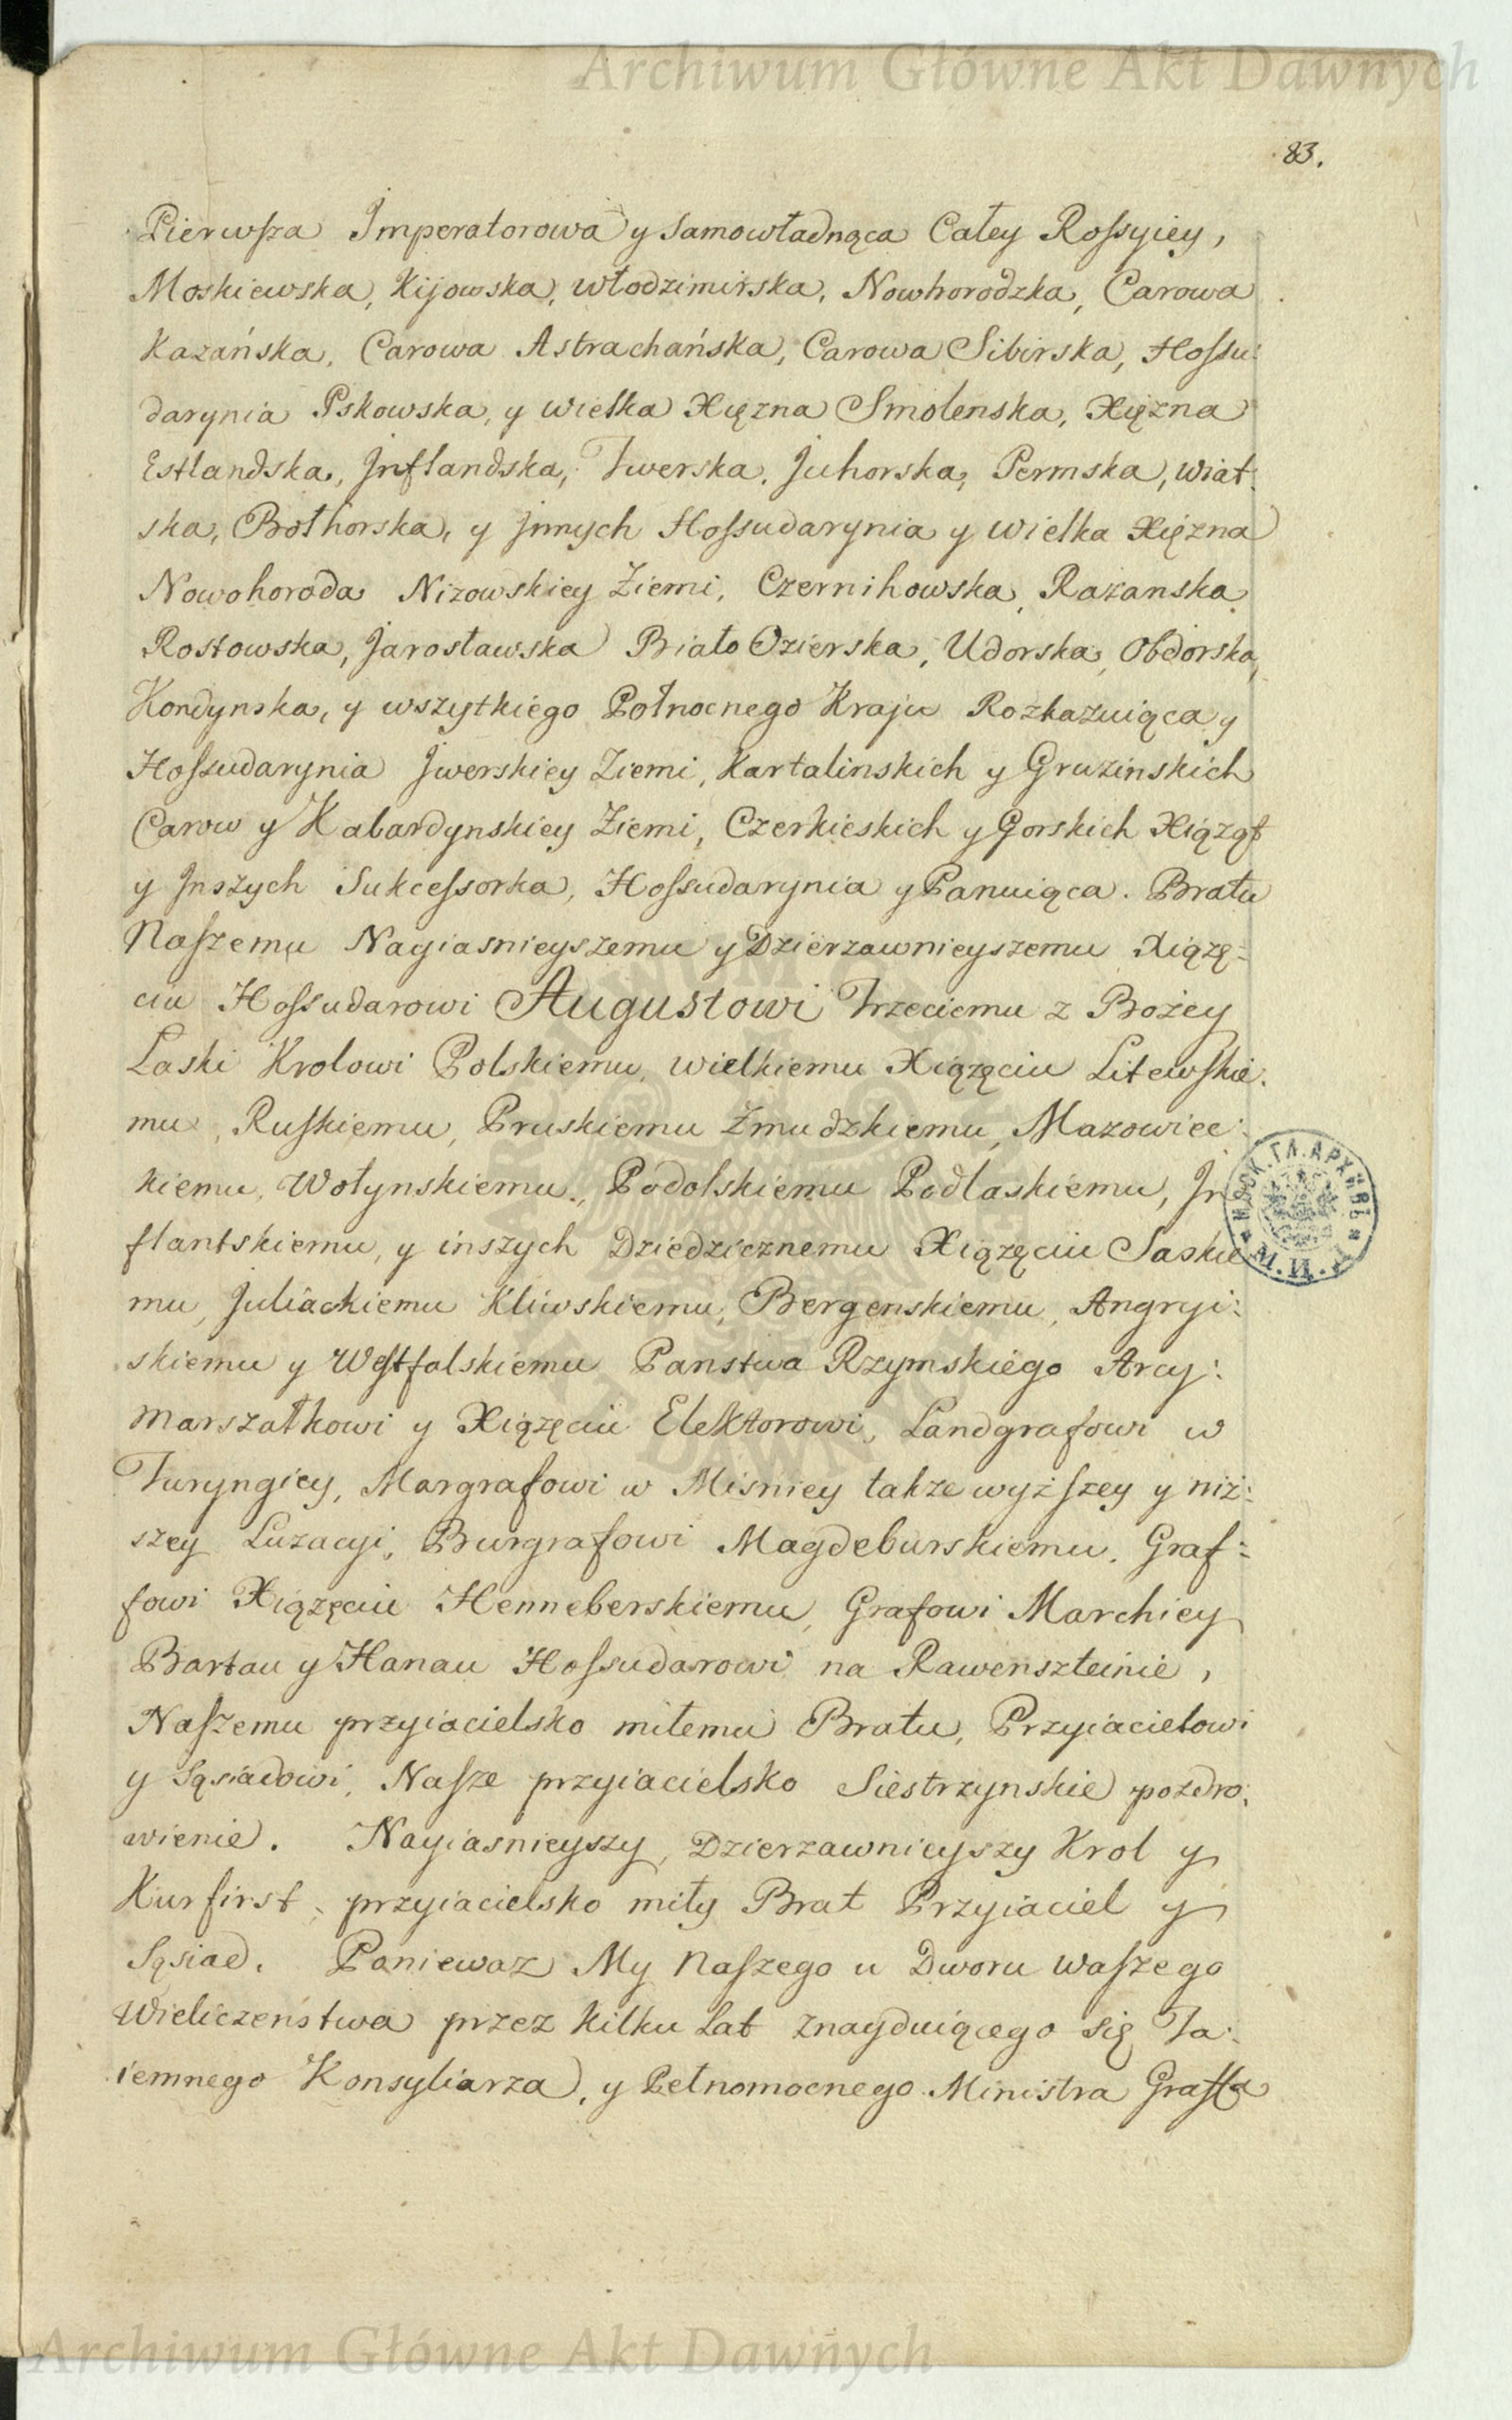 Archiwum Główne Akt Dawnych
83.
Pierwsza Imperatorowa y Samowładnąca Całey Rossyiey,
Moskiewska, Kijowska, Włodzimirska, Nowhorodzka, Carowa
Kazańska, Carowa Astrachańska, Carowa Sibirska, Hossu:
darynia Pskowska, y wielka Xiężna Smolenska, Xiężna
Estlandska, Jnflandska, Twerska, Juhorska, Permska, Wiat:
ska, Bołhorska, y Jnnych Hossudarynia y Wielka Xiężna
Nowohoroda Nizowskiey Ziemi, Czernihowska, Razanska
Rostowska, Jarosławska Biało Ozierska, Udorska, Obdorska,
Kondynska, y wszytkiego Połnocnego Kraju Rozkazuiąca y
Hossudarynia Jwerskiey Ziemi, Kartalinskich y Gruzinskich
Carow y Kabardynskiey Ziemi, Czerkieskich y Gorskich Xiąząt
y Jnszych Sukcessorka, Hossudarynia y Panuiąca. Bratu
Naszemu Nayiasnieyszemu y Dzierzawnieyszemu Xiązę:
ciu Hossudarowi Augustowi Trzeciemu z Bożey
Laski Krolowi Polskiemu, wielkiemu Xiązęciu Litewskie:
mu, Ruskiemu, Pruskiemu Zmudzkiemu, Mazowiec:
kiemu, Wołynskiemu, Podolskiemu Podlaskiemu, Jn
flantskiemu, y inszych Dziedzicznemu Xiązęciu Saskie
mu, Juliackiemu Kliwskiemu, Bergenskiemu, Angryi:
skiemu y Westfalskiemu Panstwa Rzymskiego Arcy:
Marszałkowi y Xiązęciu Elektorowi, Landgrafowi w
Turyngiey, Margrafowi w Misniey takze wyższey y niż:
szey Luzacyi, Burgrafowi Magdeburskiemu, Graf:
fowi Xiązęciu Henneberskiemu, Grafowi Marchiey
Bartau y Hanau Hossudarowi na Rawenszteinie,
Naszemu przyiacielsko miłemu Bratu, Przyiacielowi
y Sąsiadowi, Nasze przyiacielsko Siestrzynskie pozdro:
wienie. Nayiasnieyszy, Dzierzawnieyszy Krol y
Kurfirst, przyiacielsko miły Brat Przyiaciel y
Sąsiad. Poniewaz My Naszego u Dworu Waszego
Wieliczeństwa przez kilku Lat znayduiącego się Ta:
iemnego Konsyliarza, y Pełnomocnego Ministra Graffa
Archiwum Główne Akt Dawnych